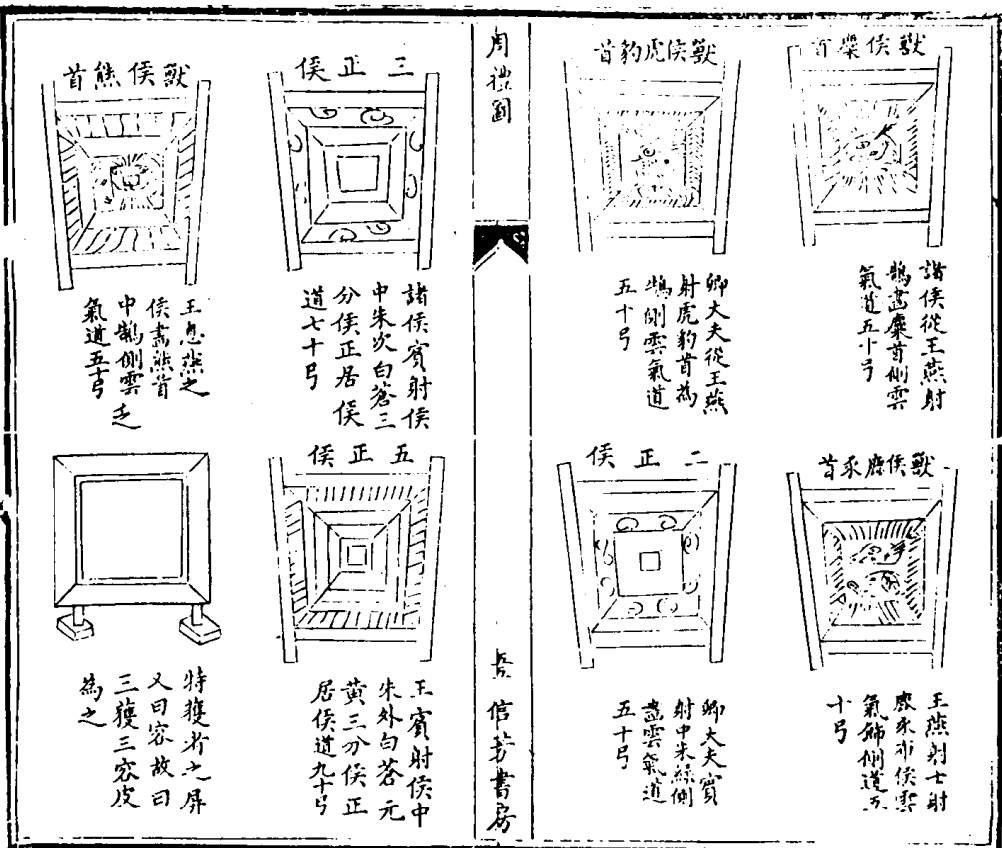 獸侯麋首
諸侯從王燕射
鵠畫麋首側雲
氣道五十弓
獸侯虎豹首
卿大夫從王燕
射虎豹首為
鵠側雲氣道
五十弓
獸侯鹿豕首
王燕射士射
鹿豕布侯雲
氣飾側道五
十弓
二正侯
卿大夫賓
射中朱綠側
畫雲氣道
五十弓
周禮圖
信芳書房
三正侯
諸侯賓射侯
中朱次白蒼三
分侯正居侯
道七十弓
獸侯熊首
王息燕之
侯畫熊首
中鵠側雲
氣道五十弓
五正侯
王賓射侯中
朱外白蒼元
黃三分侯正
居侯道九十弓
乏
待獲者之屏
又曰容故曰
三獲三容皮
為之